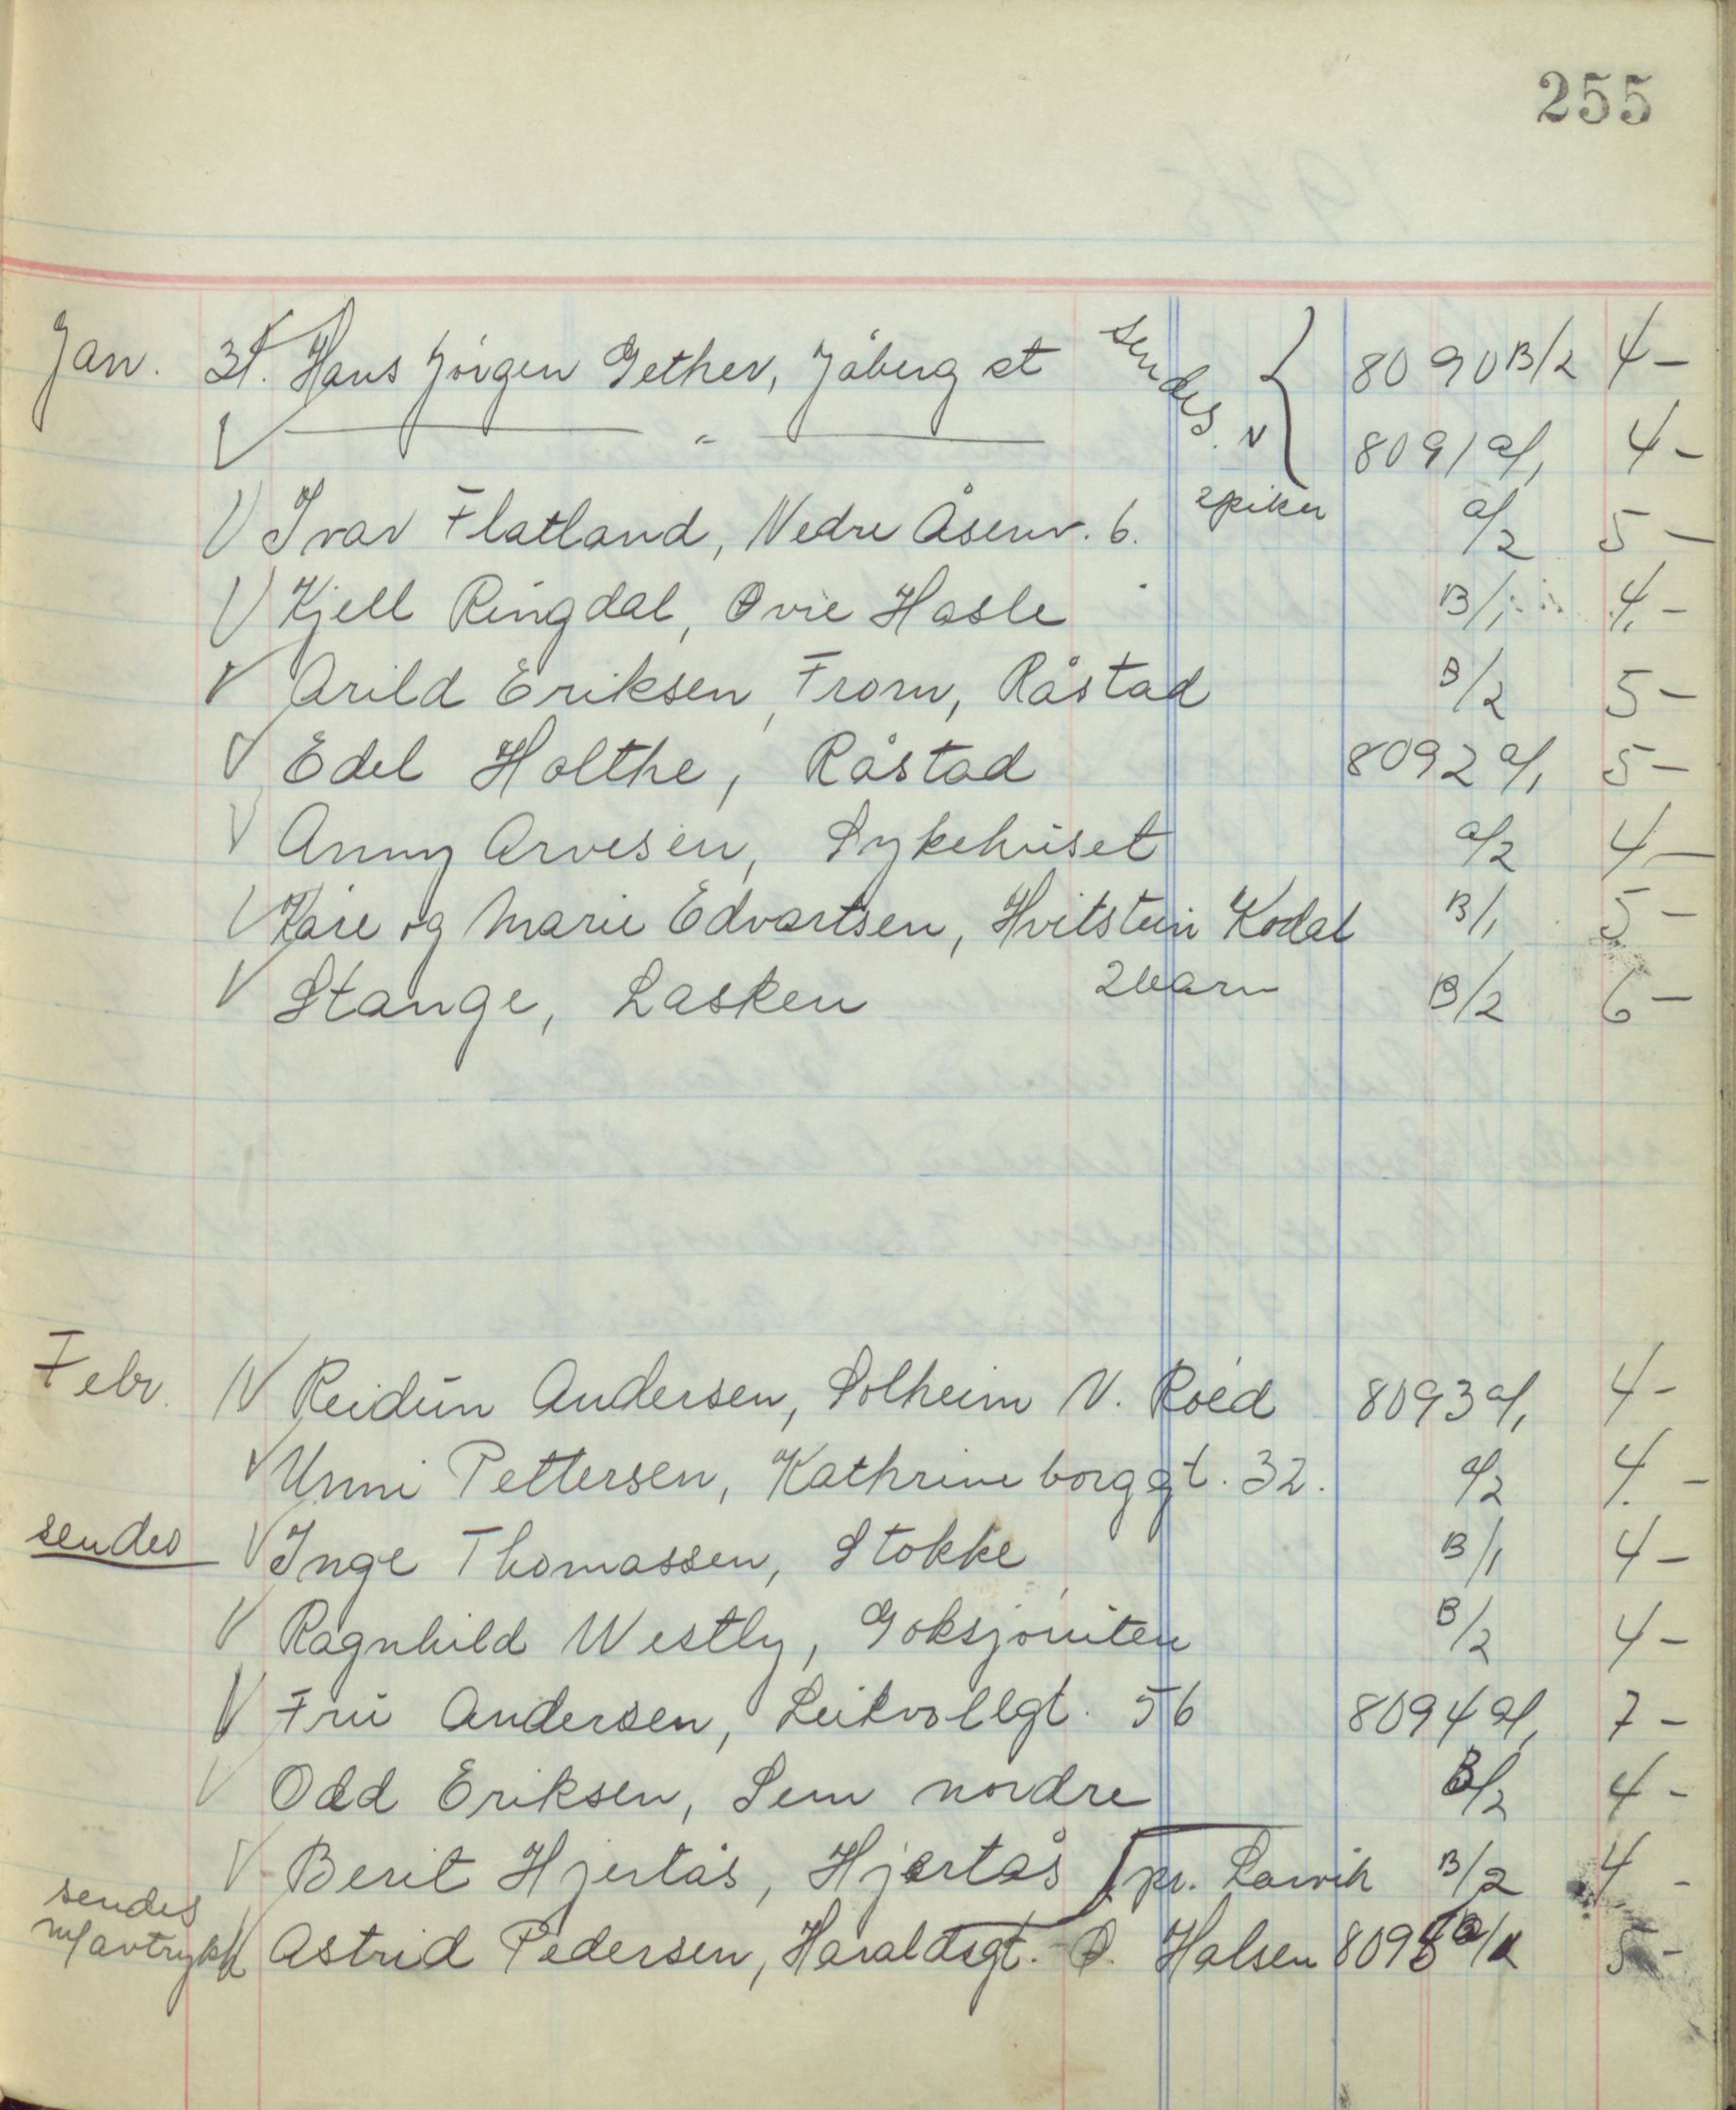 255
Jan. 31. Hans Jörgen Gether, Jåberg st sendes. { 8090 B/2 4 -
V — " — V 8091 a/1 4 -
V Ivar Flatland, Nedre Åsenv. 6. 2 piker a/2 5 -
V Kjell Ringdal, Ovre Hasle B/1 4. -
V Arild Eriksen, From, Råstad B/2 5 -
V Edel Holthe, Råstad 8092 a/1 5 -
V Anny Arvesen, Sykehuset a/2 4 -
V Kåre og Marie Edvartsen, Hvitstein Kodal B/1 5 -
V Stange, Lasken 2 barn B/2 6 -
Febr. 1 V Reidun Andersen, Solheim N. Roed 8093 a/1 4 -
V Unni Pettersen, Kathrineborggt. 32. a/2 4. -
sendes V Inge Thomassen, Stokke B/1 4 -
V Ragnhild Westly, B/2 4 -
V Fru Andersen, Leikvollgt. 56 8094 a/1 7 -
V Odd Eriksen, Sem nordre B/2 4 -
V Berit Hjertås, Hjertås pr. Larvik B/2 4 -
sendes
m/avtrykk Astrid Pedersen, Haraldsgt. Halsen 5 -